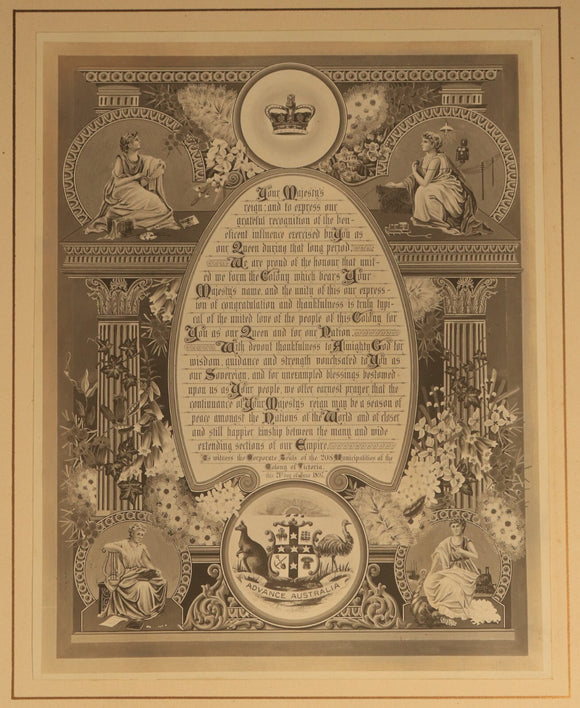 Your Majesty's
reign; and to express our
grateful recognition of the ben-
eficent influence exercised by You as
our Queen during that long period.
We are proud of the honour that unit-
ed we form the Colony which bears Your
Majesty's name, and the unity of this our express-
ion of congratulation and thankfulness is truly typi-
cal of the united love of the people of this Colony for
You as our Queen and for our Nation.
With devout thankfulness to Almighty God for
wisdom, guidance and strength vouchsafed to You as
our Sovereign, and for unexampled blessings bestowed
upon us as Your people, we offer earnest prayer that the
continuance of Your Majesty's reign may be a season of
peace amongst the Nations of the World and of closer
and still happier kinship between the many and wide-
extending sections of our Empire.
As witness the Corporate Seals of the 208 Municipalities of the
Colony of Victoria,
this day of June 1897
ADVANCE AUSTRALIA